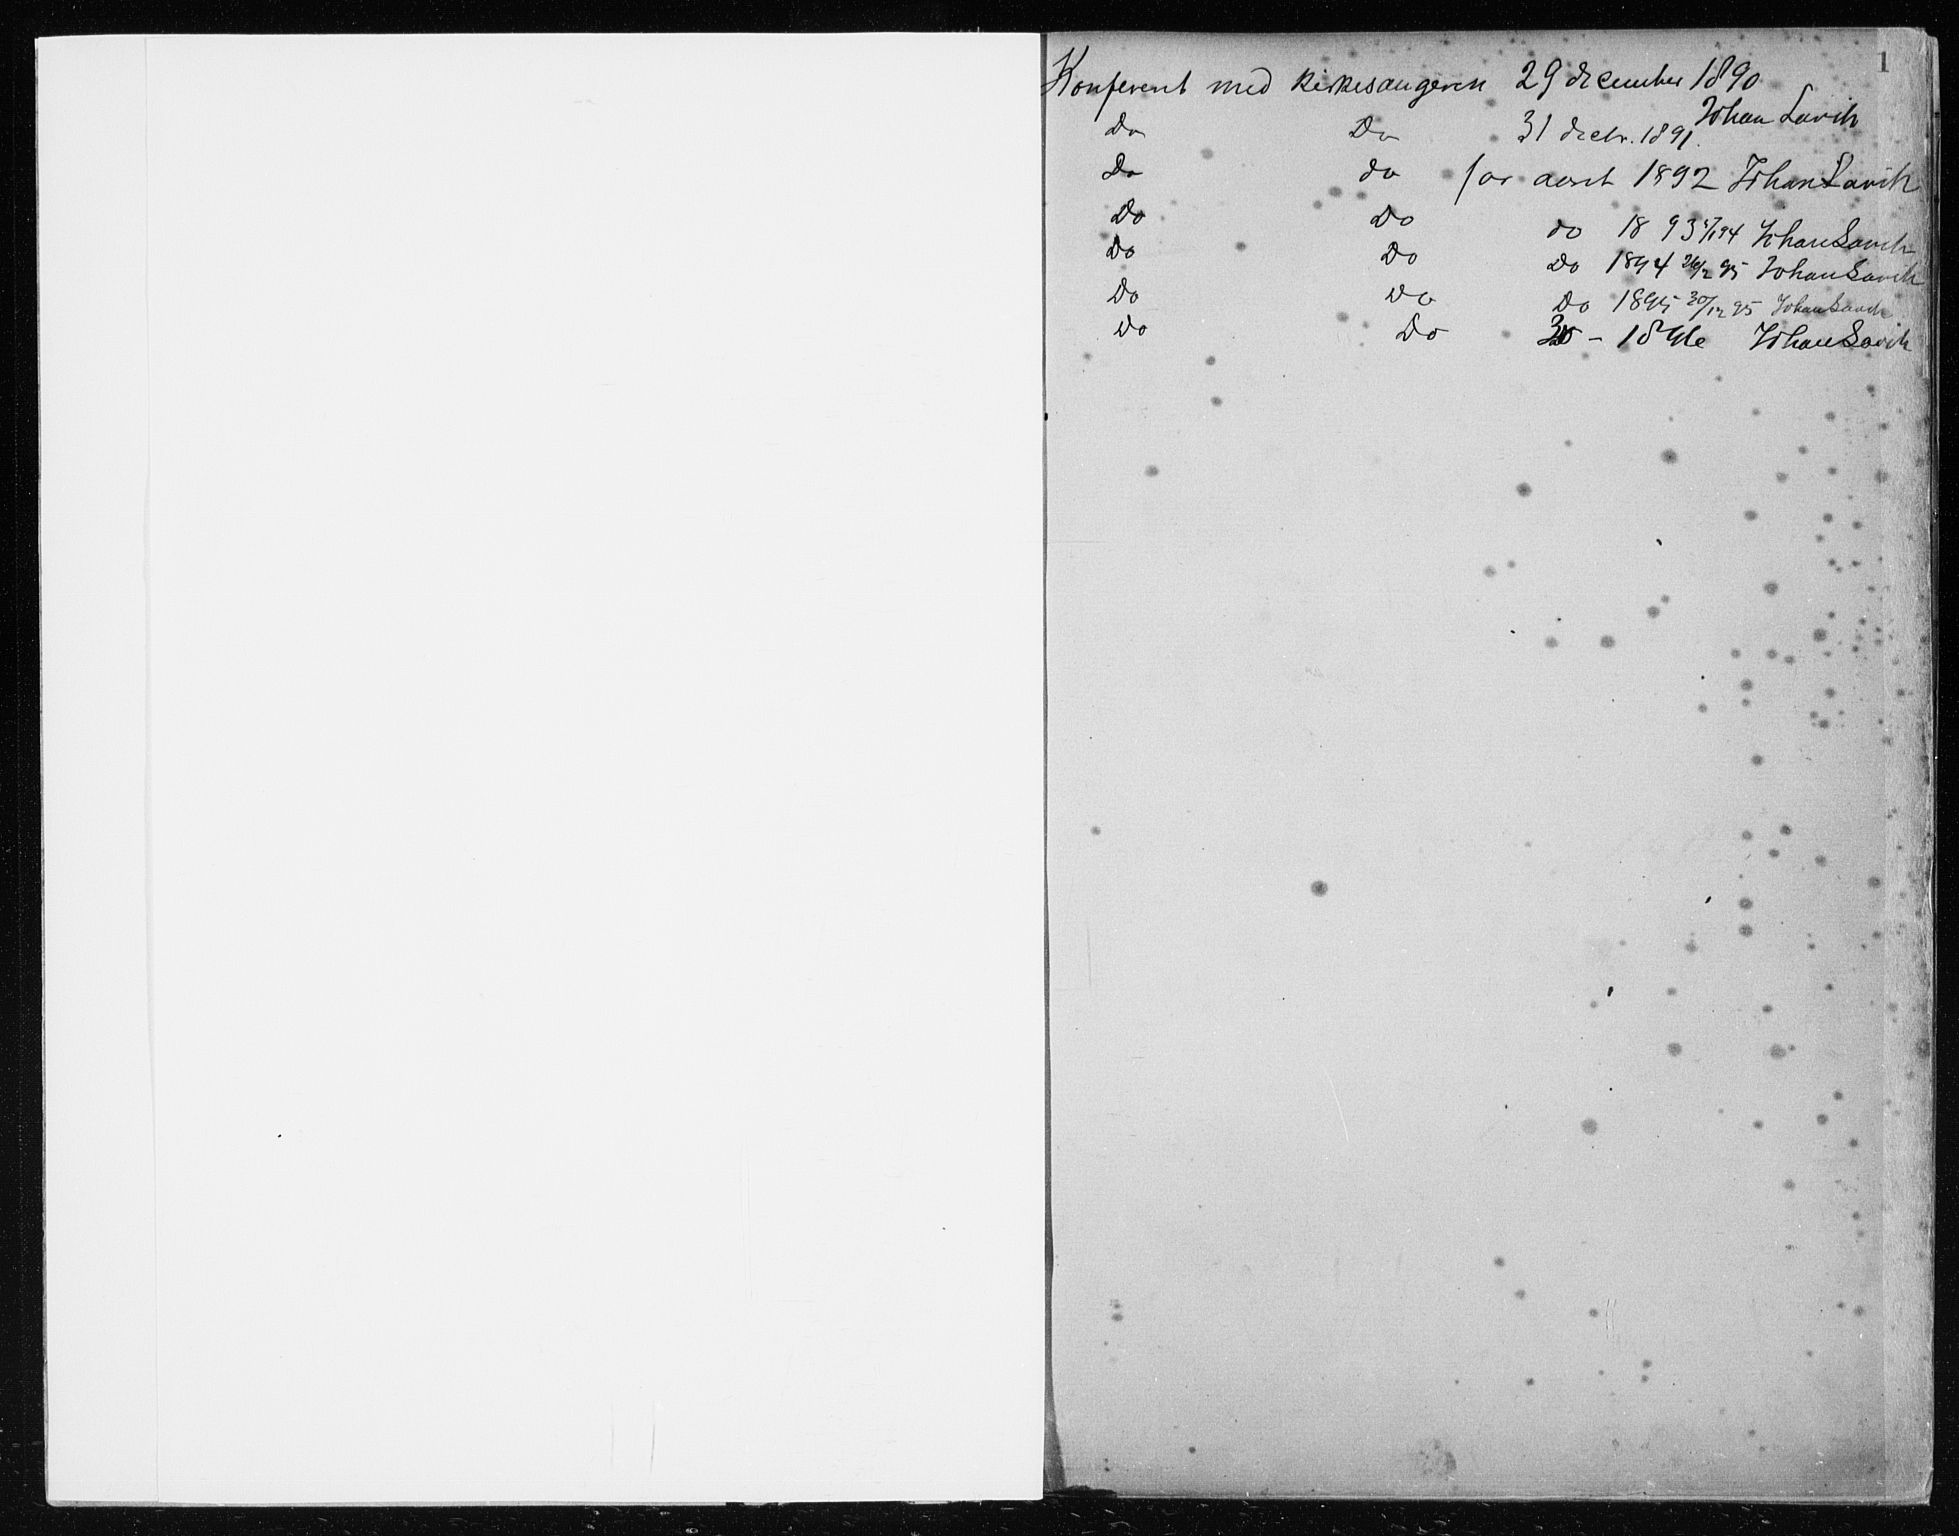 1
Konferent med kirkesangeren 29 december 1890
Johan Lavik
Do Do 31 decbr. 1891.
Do do for aaret 1892 Johan Lavik
Do Do do 1893 /1 94 Johan Lavik
Do Do Do 1894 /2 95 Johan Lavik
Do Do Do 1895 30/12 95 Johan Lavik
Do Do - 1896 Johan Lavik